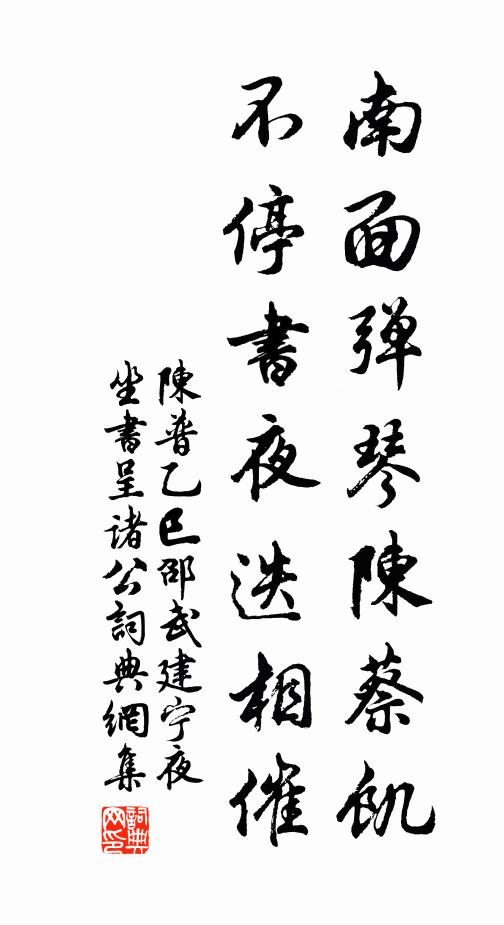 南面弹琴陳蔡飢
不停書夜迭相催
陳普乙巳邵武建宁夜
坐書呈诸公詞典網集
詞典网印